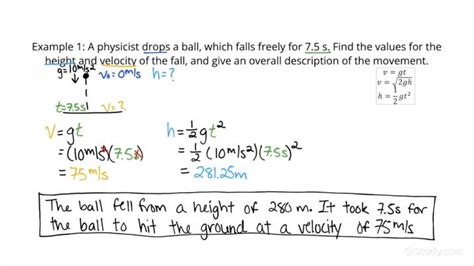 Example 1: A physicist drops a ball, which falls freely for 7.5 s. Find the values for the
height and velocity of the fall, and give an overall description of the movement.
g=10m/s² v₀=0m/s h=?
t=7.5s v=?
v = gt
v = √2gh
h = ½gt²
v=gt
= (10m/s²)(7.5s)
= 75 m/s
h=½gt²
= ½ (10m/s²)(7.5s)²
= 281.25m
The ball fell from a height of 280 m. It took 7.5s for
the ball to hit the ground at a velocity of 75m/s
Study.com